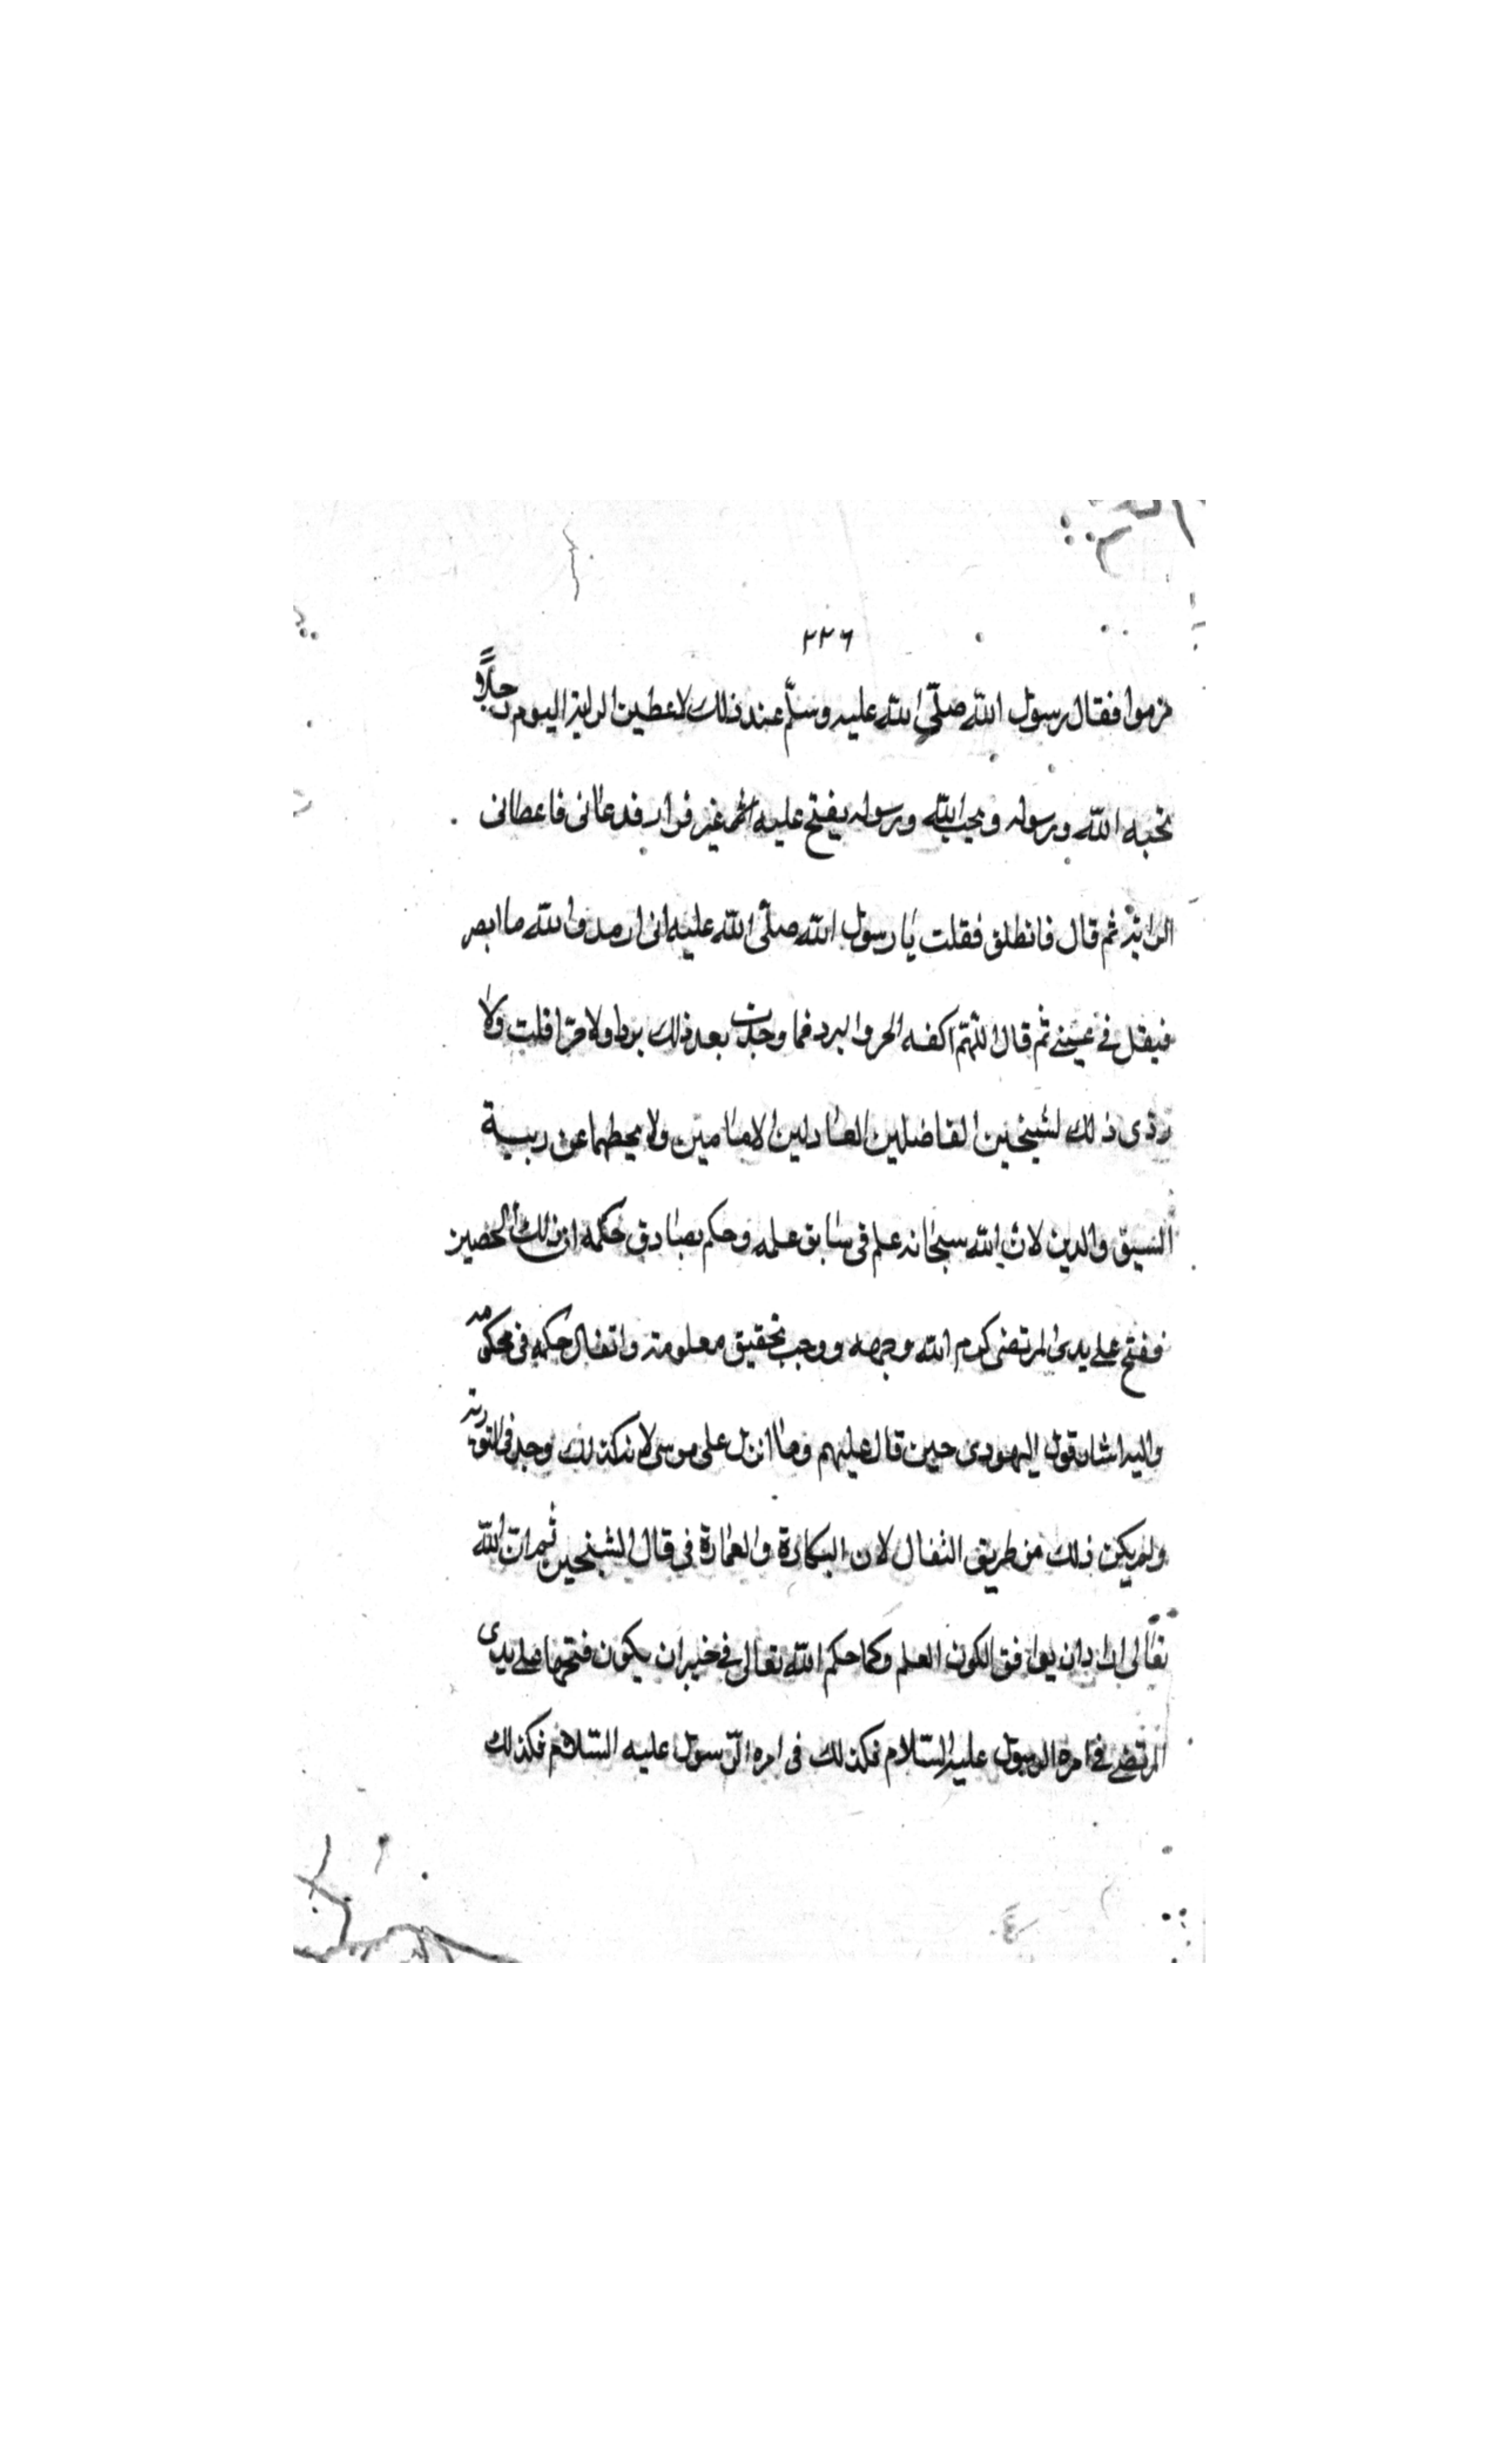 ٢٢٦
هزموا فقال رسول الله صلّى الله عليه وسلّم عند ذلك لاعطين الراية اليوم رجلاً
تحبه الله ورسوله ويحب الله ورسوله يفتح عليه غير فرار فدعانى فاعطانى
الراية ثم قال فانطلق فقلت يا رسول الله صلّى الله عليه انى ارمد والله ما ابصر
فيقل في عينى ثم قال اللّهمّ اكفه الحر والبرد فما وجدت بعد ذلك بردا ولا حرّا قلت ولا
رذى ذلك لشيخين الفاضلين العادلين الامامين ولا يحطهما عن ريبة
السبق والدين لان الله سبحانه علم فى سابق علمه وحكم بصادق حكمه ان ذلك الحضين
ففتح على يدى المرتضى كرم الله وجهه ووجب تحقيق معلومته واتفال حكمه فى محكمه
واليه اشار قول اليهودى حين قال عليهم وما انزل على موسى لانه كذلك وجد فى التورية
ولم يكن ذلك من طريق الثفال لان البكارة والعمارة فى قال الشيخين ثم ان الله
تعالى اراد ان يوافق الكون العلم وكما حكم الله تعالى في خيبر ان يكون فتحها على يدى
المرتضى في امره الرسول عليه السّلام فكذلك فى امره الرّسول عليه السّلام فكذلك